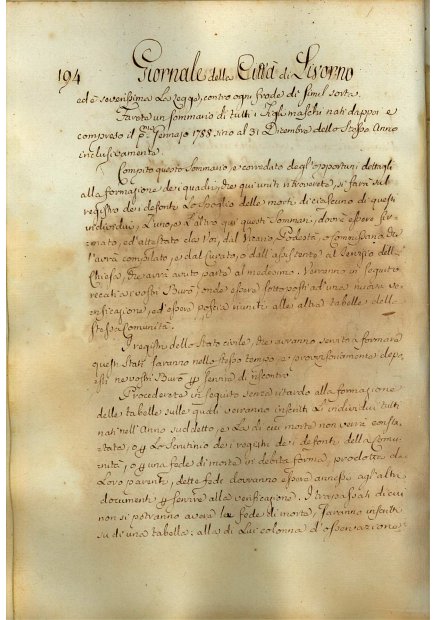 194 Giornale della Città di Livorno
ed è severissima la Legge, contro ogni frode di simil sorta.
Farete un sommario di tutti i figli maschi nati dappoi e
compreso il p.º Gennajo 1788 sino al 31 Dicembre dello stesso Anno
inclusivamente.
Compito questo Sommario, e corredato degl'opportuni dettagli
alla formazione dei quadri, che qui uniti troverete, si farà sul
registro dei defonti lo spoglio delle morti di ciascuno di questi
individui. L'uno, e l'altro di questi Sommari, dovrà essere fir-
mato, ed attestato da Voi, dal Vicario Podestà, o Commissario che
l'avrà compilato, e dal Curato, o dall'assistente al servizio della
Chiesa, che avrà avuto parte al medesimo. Verranno in seguito
recati ai vostri Burò onde essere sottoposti ad una nuova ve-
rificazione, ed essere poscia riuniti alle altre tabelle della
stessa Comunità.
I registri dello stato civile, che avranno servito a formare
questi Stati saranno nello stesso tempo e provvisoriamente depo-
sti nei vostri Burò per servir di riscontro.
Procederete in seguito senza ritardo alla formazione
delle tabelle sulle quali verranno inseriti gl'individui tutti
nati nell'Anno suddetto, e la di cui morte non verrà consta-
tata, o per lo scrutinio dei registri dei defonti della Comu-
nità, o per una fede di morte in debita forma, prodotta da
loro parenti, dette fedi dovranno essere annesse agl'altri
documenti per servire alla verificazione. I trapassati di cui
non si potranno avere le fedi di morte, saranno inseriti
su di una tabella: alla di lui colonna d'osservazione